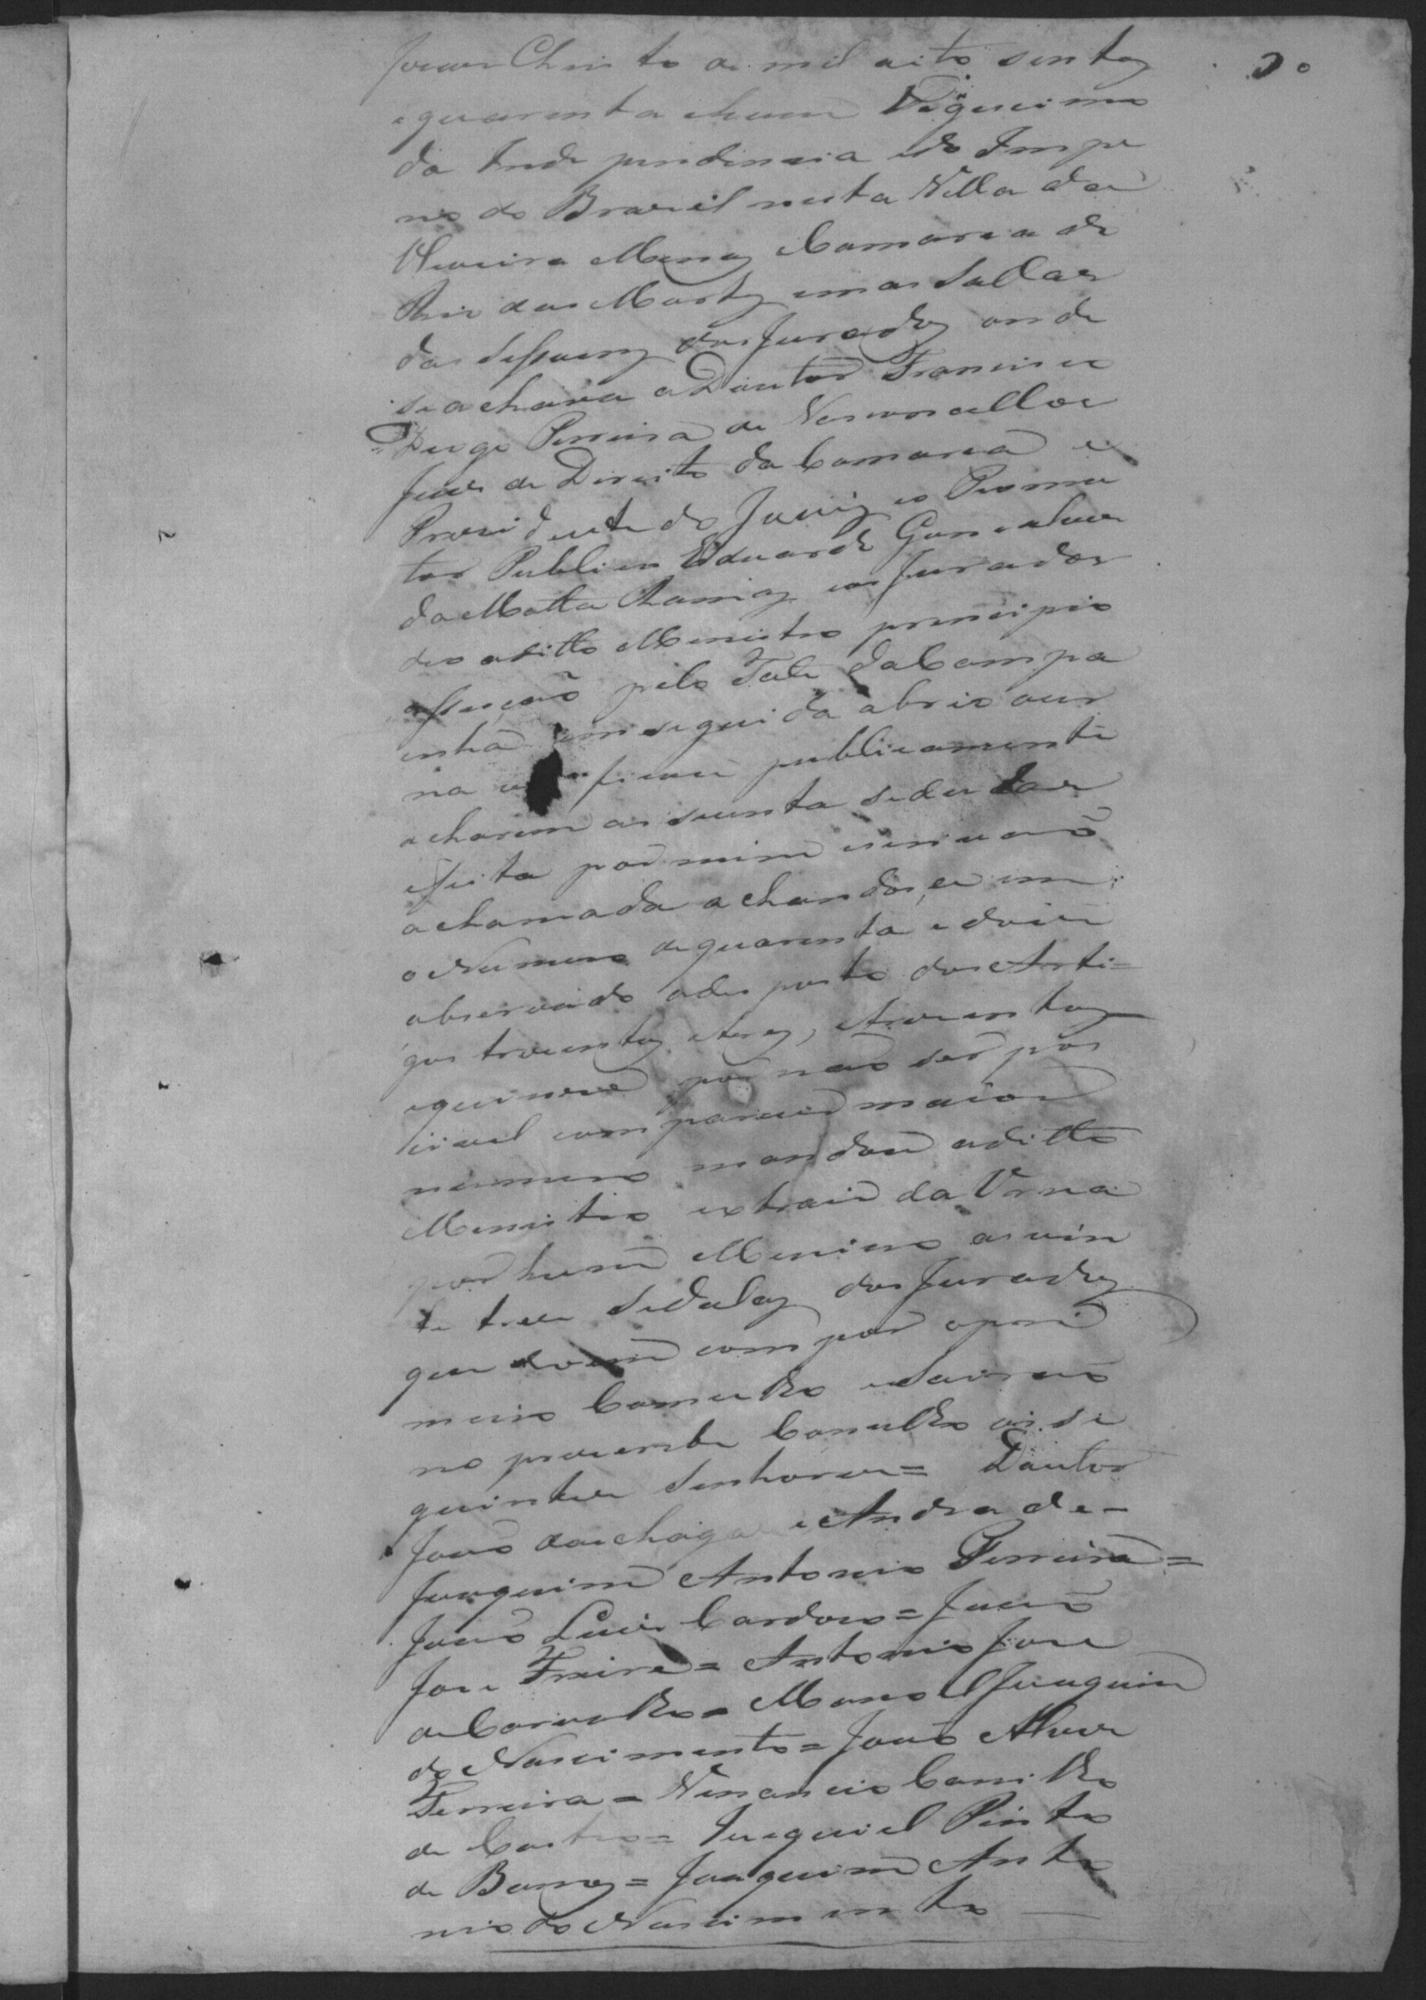 Jesus Christo de mil oito sentos
e quarenta e hum Vigecimo
da Inde pendencia e do Impe
rio do Brazil nesta Villa da
Oliveira Minas Comarca do
Rio das Mortes em as Sallas
das Sessoens dos Jurados onde
se achava o Doutor Francisco
Diogo Pereira de Vasconcellos
Juis de Direito da Comarca e
Prezidente do Jury, e o Promo
tor Publico Eduardo Gonsalves
da Motta Ramos, e os Jurados
deo o ditto Menistro prencipio
a Sessão pelo Toke da Campa
inhá em seguida abrio a ur
na e ficou publicamente
acharem as secenta sedullas
e feita por mim escrivão
a chamada achandose em
o Numero de quarenta e dois
observado o des posto dos Arti=
gos trezentos e tres, trezentos
e quinze por não ser pos
sivel comparecer maior
numero mandou o ditto
Menistro extrair da Urna
por hum Menino as vin
te tres Sedulas dos Jurados
que devem compor o pri
meiro Conselho e Sairão
no prezente Conselho os se
guintes Senhores = Doutor
João das Chagas e Andrade =
Joaquim Antonio Ferreira =
João Luis Cardozo = João
Joze Freire = Antonio Joze
de Carvalho = Manoel Joaquim
do Nascimento = João Alves
Ferreira = Venancio Camillo
de Castro = Izequiel Pinto
de Barros = Joaquim Anto
nio do Nascimento